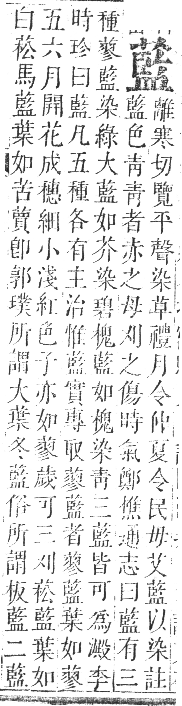 藍
離寒切覽平聲染草禮月令仲夏令民毋艾藍以染註
藍色青青者赤之母刈之傷時氣鄭樵通志曰藍有三
種蓼藍染綠大藍如芥染碧槐藍如槐染青三藍皆可為澱李
時珍曰藍凡五種各有主治惟藍實專取蓼藍者蓼藍葉如蓼
五六月開花成穗細小淺紅色子亦如蓼歲可三刈菘藍葉如
白菘馬藍葉如苦蕒卽郭璞所謂大葉冬藍俗所謂板藍二藍